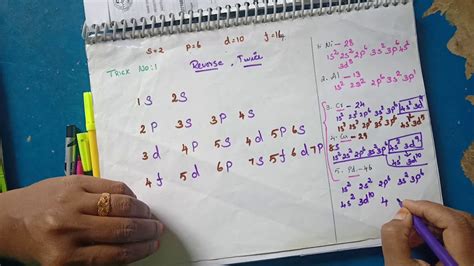 s=2 p=6 d=10 f=14
TRICK NO:1
Reverse, Twice
1s 2s
2p 3s 3p 4s
3d 4p 5s 4d 5p 6s
4f 5d 6p 7s 5f 6d 7p 8s
1. Ni - 28
1s² 2s² 2p⁶ 3s² 3p⁶ 4s²
3d⁸
2. Al - 13
1s² 2s² 2p⁶ 3s² 3p¹
3. Cr - 24
1s² 2s² 2p⁶ 3s² 3p⁶
1s² 2s² 2p⁶ 3s² 3p⁶ 4s¹ 3d⁵
4. Cu - 29
1s² 2s² 2p⁶ 3s² 3p⁶ 4s² 3d⁹
4s¹ 3d¹⁰
5. Pd - 46
1s² 2s² 2p⁶ 3s² 3p⁶
4s² 3d¹⁰ 4